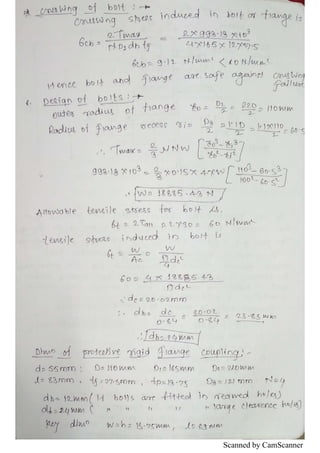 crushing of bolt :→
crushing stress induced in bolt or flange is
6cb = 2Tmax / n D1 db tf = 2 × 993.18 × 10³ / 4×165×12×27.5
6cb = 9.12 N/mm² < 40 N/mm²
Hence bolt and flange are safe against crushing failure
Design of bolts :→
outer radius of flange r0 = D2/2 = 220/2 = 110mm
Radius of flange recess ri = D3/2 = 1.1D/2 = 1.1×110/2 = 60.5
∴ Tmax = 2/3 μ N W [r0³ - ri³ / r0² - ri²]
993.18 × 10³ = 2/3 × 0.15 × 4 × W [110³ - 60.5³ / 110² - 60.5²]
∴ W = 18885.43 N
Allowable tensile stress for bolt is
6t = 2 × 30 = 60 N/mm²
tensile stress induced in bolt is
6t = W/Ac = W / π/4 dc²
60 = 4 × 18885.43 / π dc²
∴ dc = 20.02mm
∴ db = dc/0.84 = 20.02/0.84 = 23.83 mm
∴ db = 24mm
Dimn of protective rigid flange coupling :-
d = 55mm : D = 110mm D1 = 165mm D2 = 220mm
l = 83mm, tf = 27.5mm, tp = 13.75 D3 = 121 mm N=4
db = 12mm (If bolts are fitted in reamed holes)
db = 24mm ( " " " " " large clearance holes)
key dimn w = h = 18.75mm, l = 83mm
Scanned by CamScanner